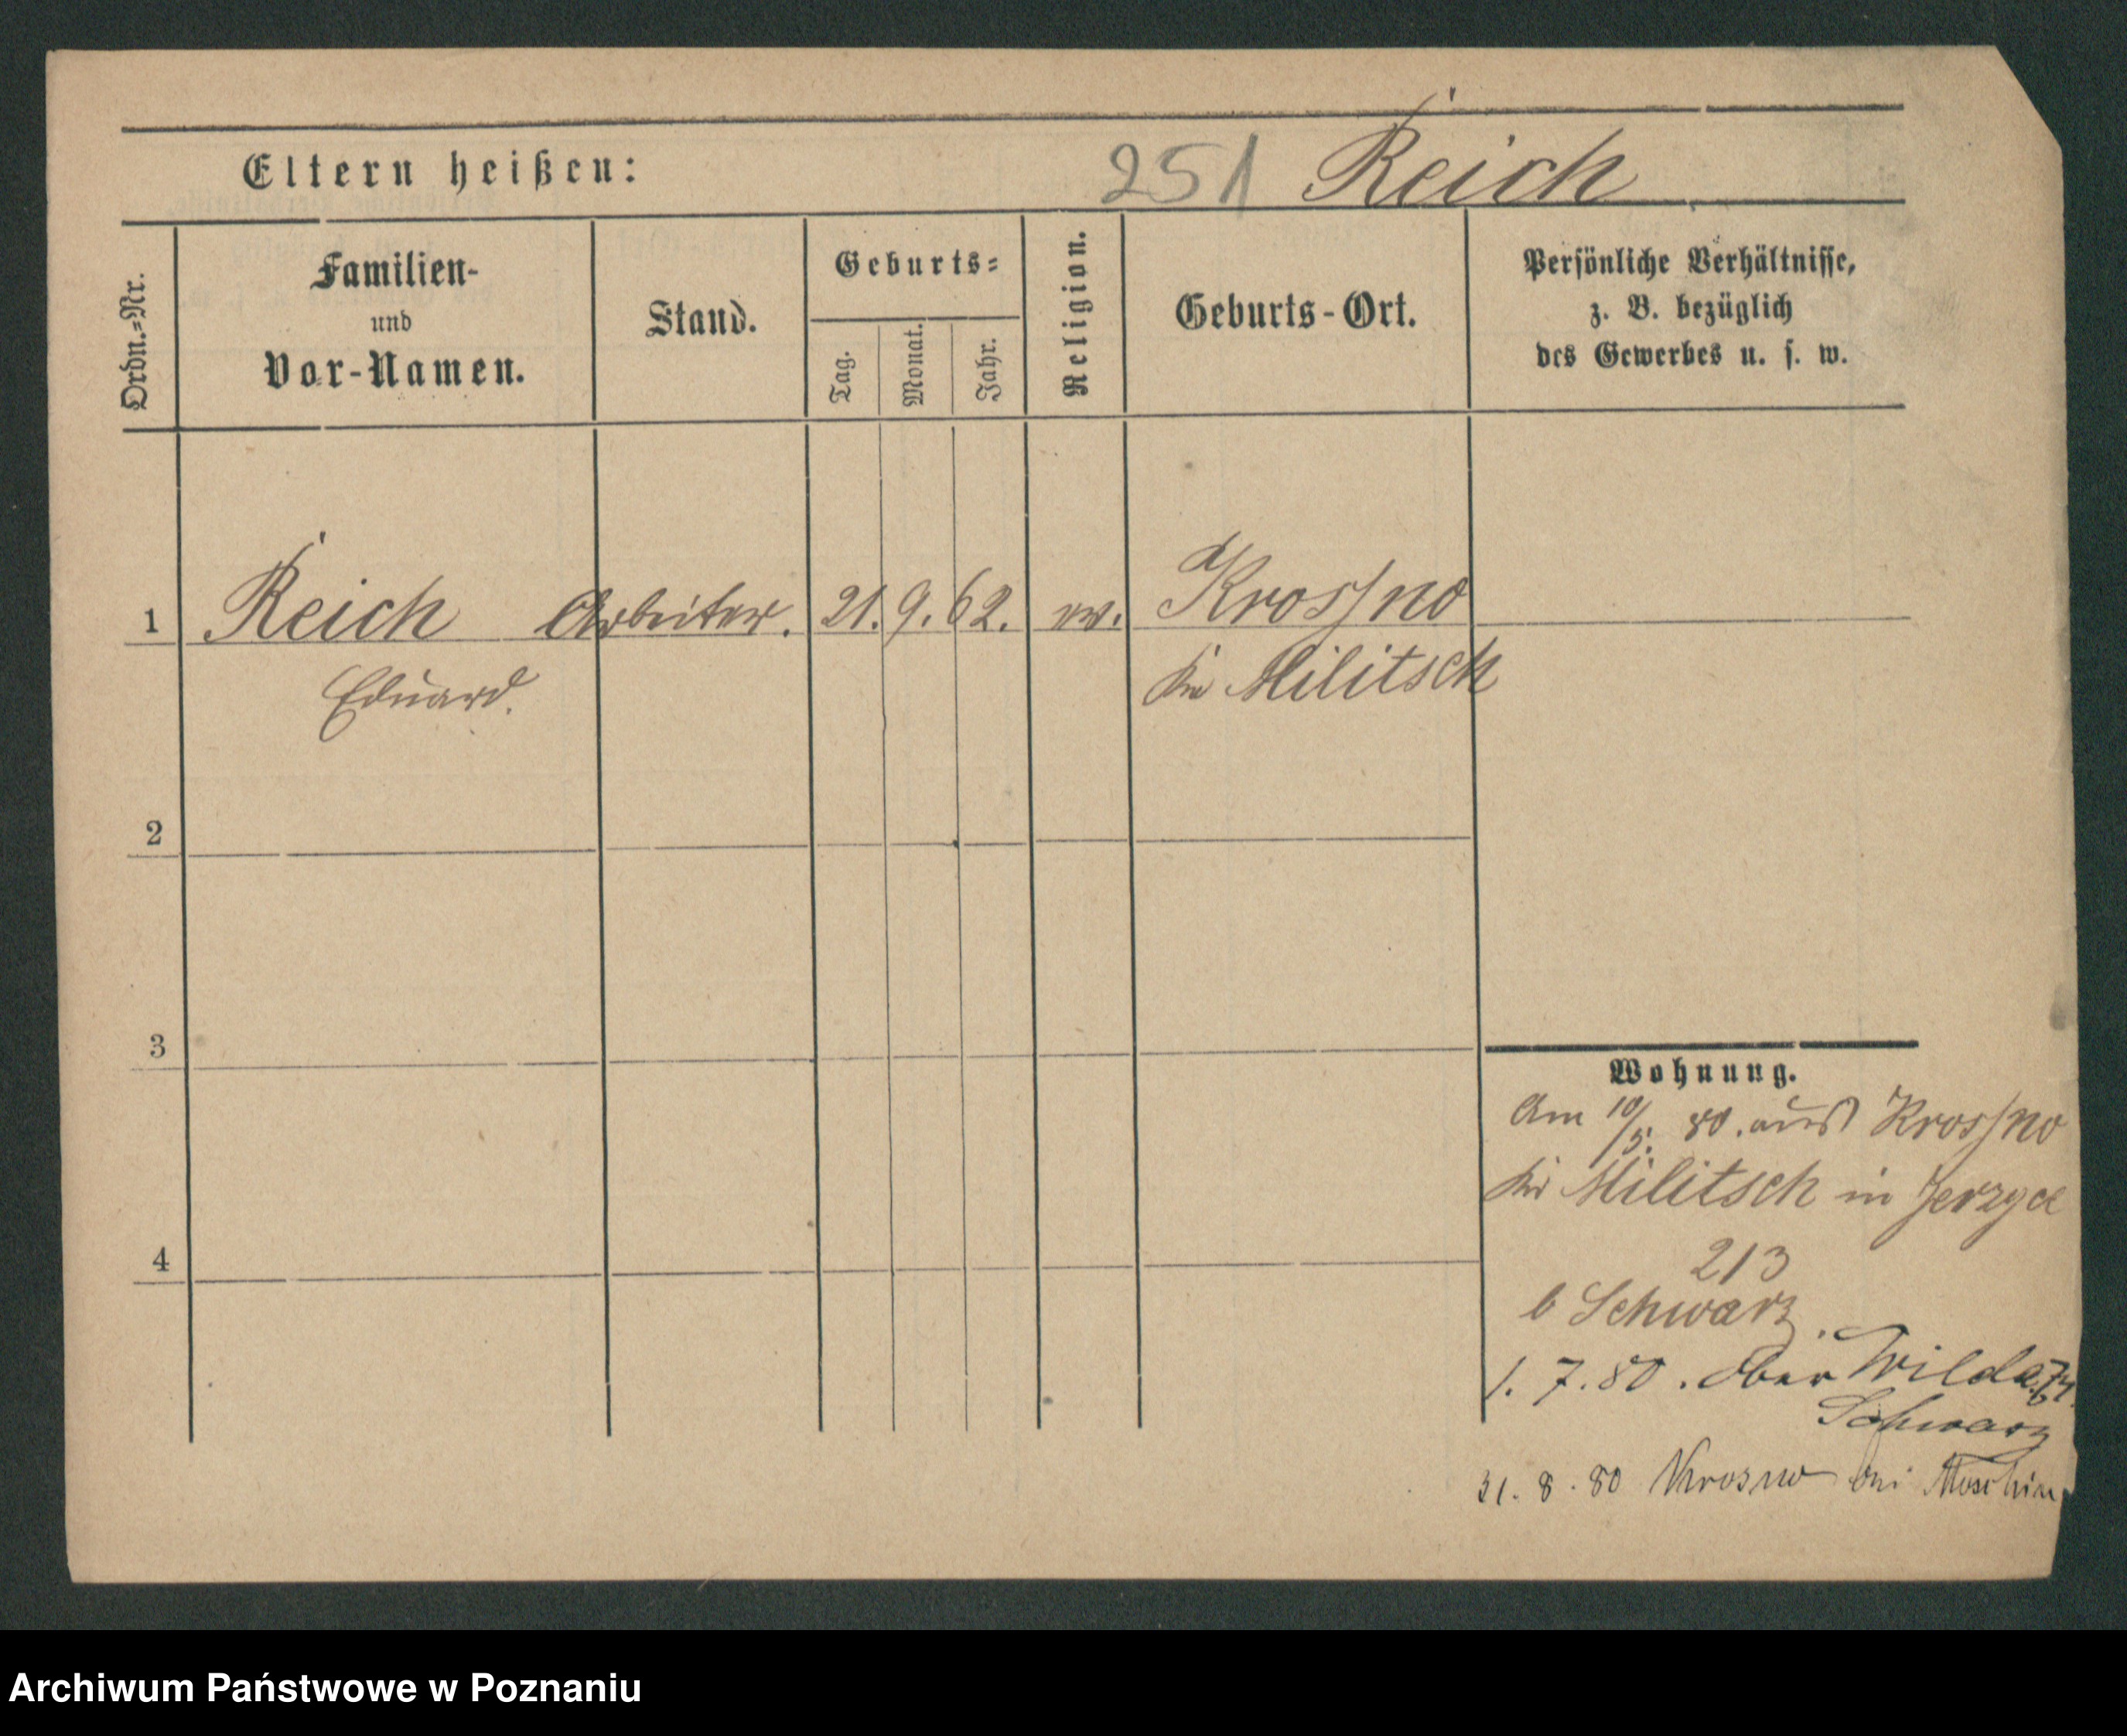 Eltern heißen: 251 Reich
Ordn.=Nr.
Familien-
und
Vor-Namen.
Stand.
Geburts=
Tag.
Monat.
Jahr.
Religion.
Geburts-Ort.
Persönliche Verhältnisse,
z. B. bezüglich
des Gewerbes u. s. w.
1 Reich Arbeiter. 21. 9. 62. ev. Krossno
Eduard. Kr Militsch
2
3
4
Wohnung.
Am 10/5. 80. aus Krossno
Kr Militsch in Jerzyce
213
b Schwarz.
1. 7. 80. Ober Wilda
Schwarz
31. 8. 80 Krosno bei Moschin
Archiwum Państwowe w Poznaniu